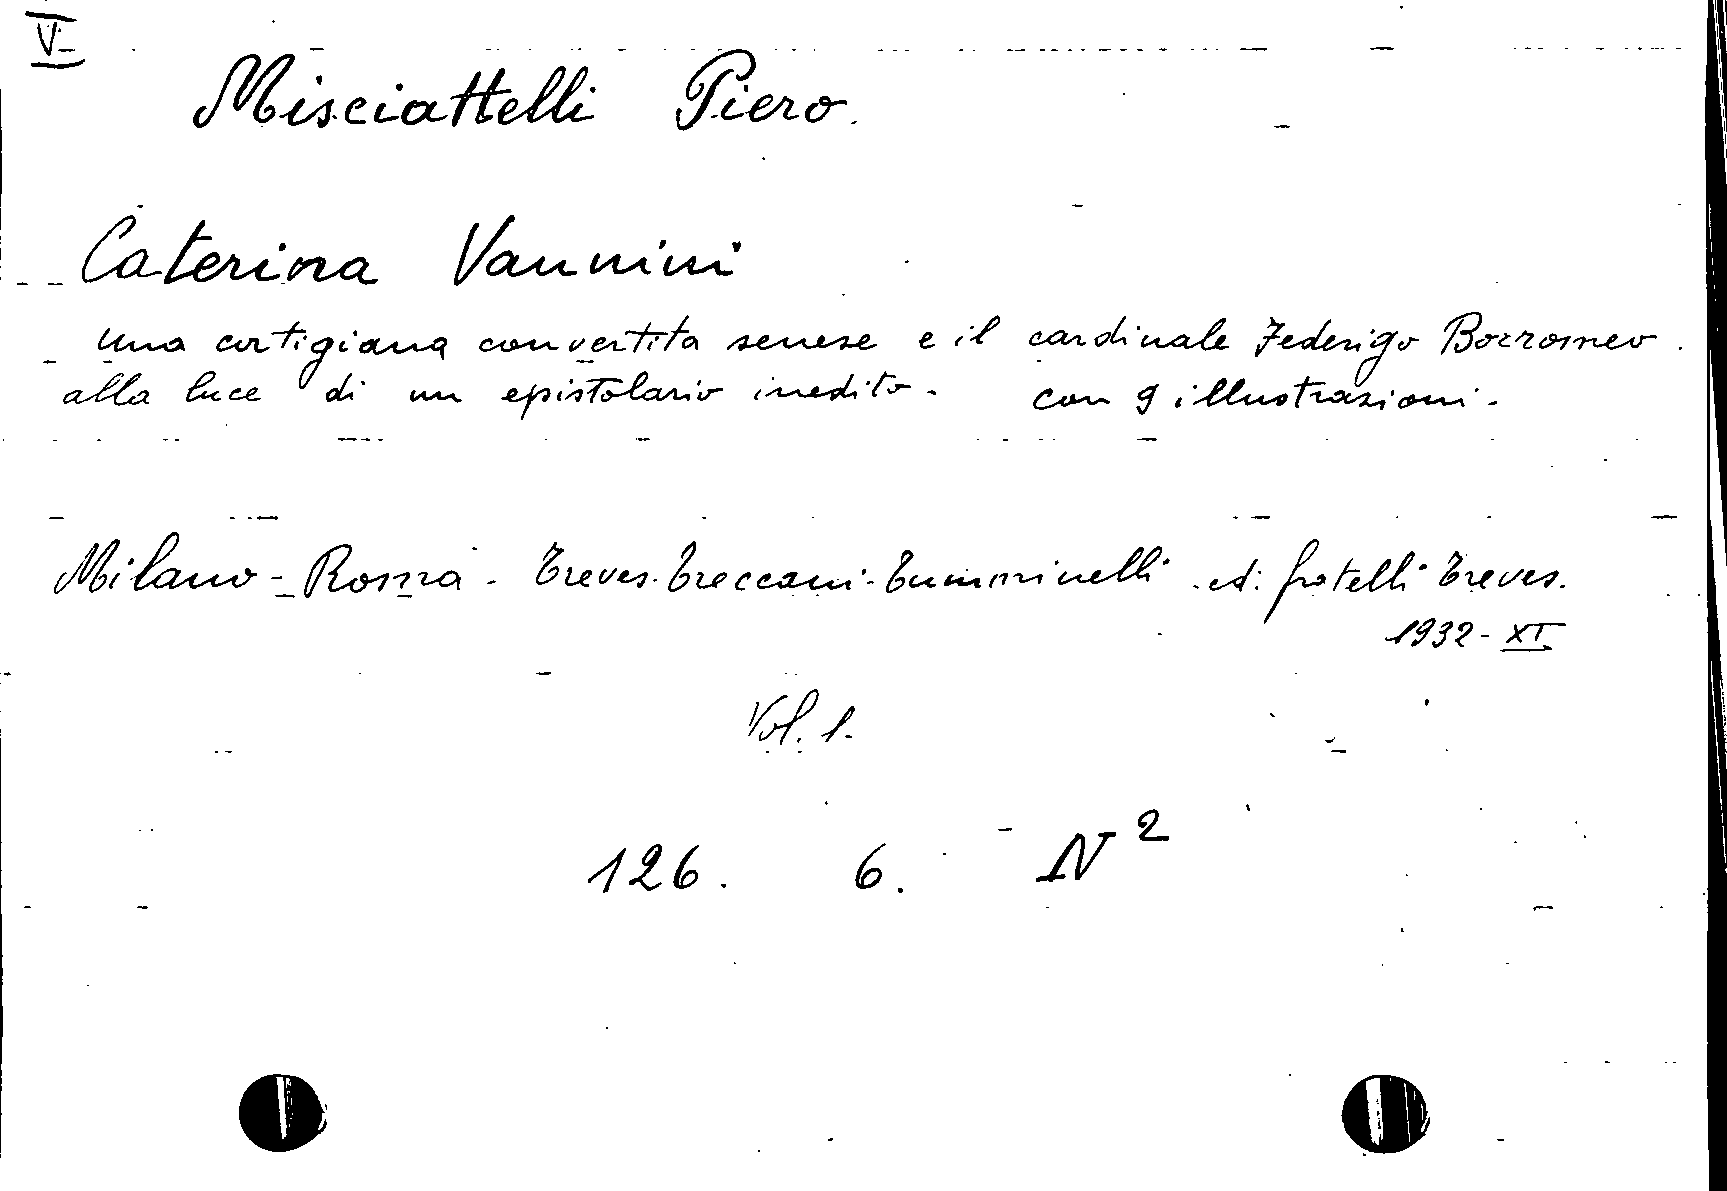 V
Misciattelli Piero.
Caterina Vannini
una cortigiana convertita senese e il cardinale Federigo Borromeo
alla luce di un epistolario inedito. con 9 illustrazioni.
Milano-Roma. Treves. Treccani. Tumminelli. ed. fratelli Treves.
1932-XI
Vol. 1.
126. 6. N 2